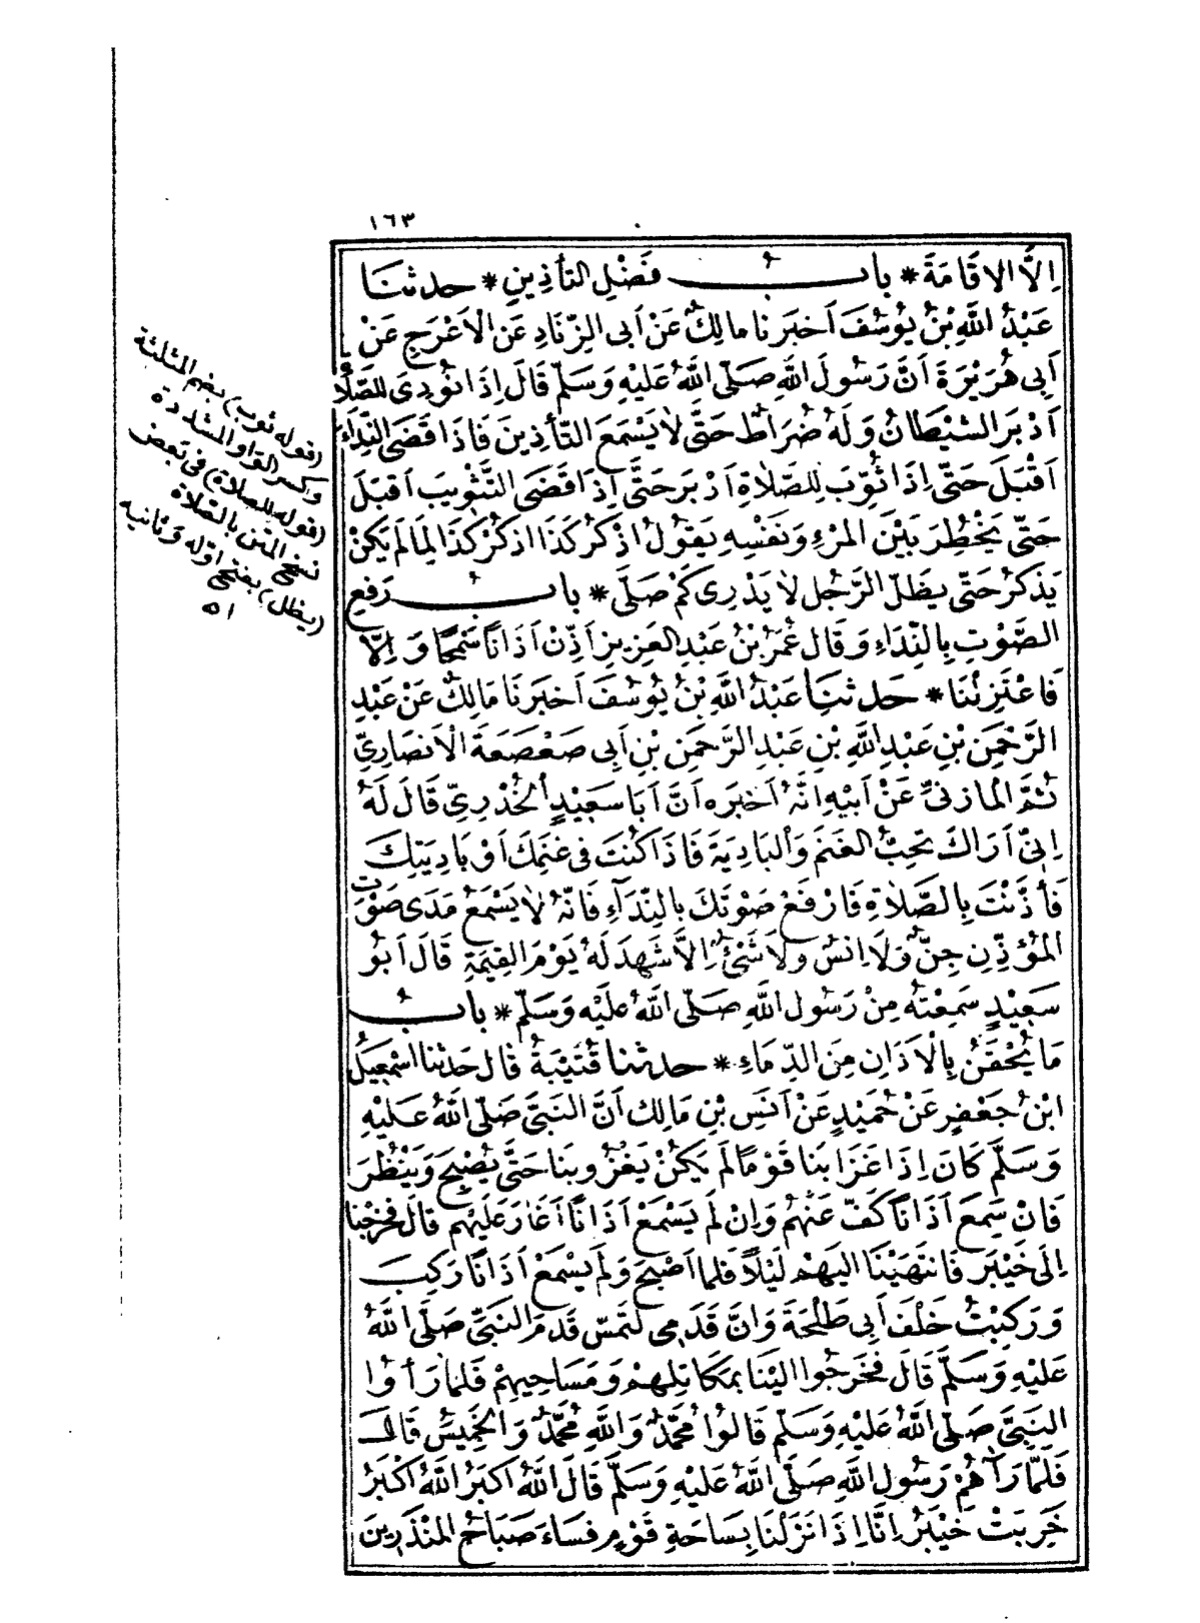 ١٦٣
اِلَّا الاِقَامَةَ * بابُ فَضْلِ التأذِينِ * حدثنَا
عَبْدُ اللَّهِ بْنُ يُوسُفَ اَخبَرنا مالِكٌ عَنْ اَبى الزِّنَادِ عَنِ الْاَعْرَجِ عَنْ
اَبِى هُرَيْرَةَ اَنَّ رَسُولَ اللَّهِ صَلَّى اللَّهُ عَلَيْهِ وَسَلَّمَ قَالَ اِذَا نُودِىَ للصَّلَاةِ
اَدْبَرَ الشَّيْطَانُ وَلَهُ ضُرَاطٌ حَتَّى لَا يَسْمَعَ التَّأذِينَ فَاذَا قَضَى النِّدَاءَ
اَقْبَلَ حَتَّى اِذَا ثُوِّبَ لِلصَّلَاةِ اَدْبَرَ حَتَّى اِذَا قَضَى التَّثْوِيبَ اَقبَلَ
حَتَّى يَخْطُرَ بَيْنَ المرْءِ وَنَفْسِهِ يَقُولُ اذْكُر كَذَا اذكُرْ كَذَا لِمَا لَم يَكُنْ
يَذكُرُ حَتّى يظَلّ الرَّجُل لَا يَدْرِى كَمْ صَلَّى * بابُ رَفعِ
الصَّوْتِ بِالنِّدَاءِ وَقَال عُمَرُ بْنُ عَبْدِ العَزِيزِ اَذِّنْ اَذَانًا سَمْحًا وَاِلَّا
فَاعْتَزِلْنَا * حَدثنَا عَبْدُ اللَّهِ بْنُ يُوسُفَ اَخبَرَنَا مَالِكٌ عَنْ عَبْدِ
الرَّحْمَنِ بْنِ عَبْدِ اللَّهِ بْنِ عَبْدِ الرَّحمَنِ بْنِ اَبِى صَعْصَعَةَ الْاَنصَارِىِّ
ثُمَّ الْمازنىِّ عَنْ اَبيْهِ اَنَّهُ اَخبَرَه اَنَّ اَبَا سَعِيْدٍ الْخُدْرِىّ قَالَ لَهُ
اِنِّى اَرَاكَ تحِبُّ الغَنَمَ وَالبَادِيَةَ فَاذَا كُنْتَ فى غنَمِكَ اَوْ بَادِيَتِكَ
فَأَذَّنْتَ بِالصَّلَاةِ فَارْفَعْ صَوْتَكَ بالنِّدَآءِ فَانَّهُ لَا يَسْمَعُ مَدَى صَوْتِ
المُؤَذِّنِ جِنٌّ وَلَا اِنسٌ وَلَا شَىْءٌ اِلَّا شَهِدَ لَهُ يَوْمَ القِيٰمَةِ قَالَ اَبُو
سَعِيْدٍ سَمِعْتُهُ مِنْ رَسُولِ اللَّهِ صَلَّى اللَّهُ عَلَيْهِ وَسَلّمَ * بابُ
مَا يُحْقَنُ بِالْاَذَانِ مِنَ الدِّمَاءِ * حدثنا قُتَيْبَةُ قال حَدثنا اسْمٰعِيلُ
ابْنُ جَعْفَرٍ عَنْ حُمَيْدٍ عَنْ اَنَسِ بْنِ مَالِك اَنَّ النَبِىَّ صَلَّى اللَّهُ عَليْهِ
وَسَلَّمَ كَانَ اِذَا غَزَا بنا قَوْمًا لَم يَكُنْ يَغْزُو بنا حَتَّى يُصْبِحَ وَيَنْظُرَ
فَانْ سَمِعَ اَذَانًا كَفّ عَنْهُم وَاِنْ لَم يَسْمَعْ اَذَانًا اَغَارَ عَلَيْهِم قالَ فَخَرَجْنا
اِلَى خَيْبَرَ فَانتَهَيْنَا اليَهِمْ لَيْلًا فَلما اَصْبَحَ وَلم يَسْمَعْ اَذَانًا رَكِبَ
وَرَكِبْتُ خَلْفَ اَبِى طَلْحَةَ وَانَّ قَدَمِى لَتَمسّ قَدَمَ النَبِىِّ صَلَّى اللَّهُ
عَليْهِ وَسَلَّمَ قَالَ فَخَرَجُوا اليْنَا بمَكَاتِلِهِمْ وَمَسَاحِيهِمْ فَلمَا رَأوْا
النبِىَّ صَلَّى اللَّهُ عَليْهِ وَسَلّمَ قَالوُا مُحَمَّدٌ وَاللَّهِ مُحَمَّدٌ وَالخَمِيسُ قَالَ
فَلَمَّا رَآهُمْ رَسُول اللَّهِ صَلَّى اللَّهُ عَليْهِ وَسَلَّمَ قَالَ اللَّهُ اَكبَرُ اللَّهُ اَكْبَرُ
خَرِبَتْ خَيْبَرُ اِنَّا اِذَا نَزَلْنَا بِسَاحَةِ قَوْمٍ فسَاءَ صَبَاحُ المنْذَرِينَ
(قوله ثوب) بضم المثلثة
وكسر الواو المشددة
(قوله للصلاة) فى بعض
نسخ المتن بالصلاة
(يظل) بفتح اوّله وثانيه
اه